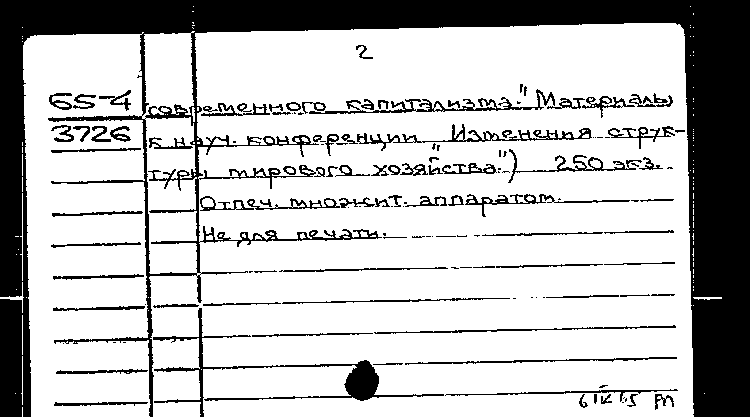 2
65-4 современного капитализма." Материалы
3726 к науч. конференции "Изменения струк-
туры мирового хозяйства") 250 экз.
Отпеч. множит. аппаратом.
Не для печати.